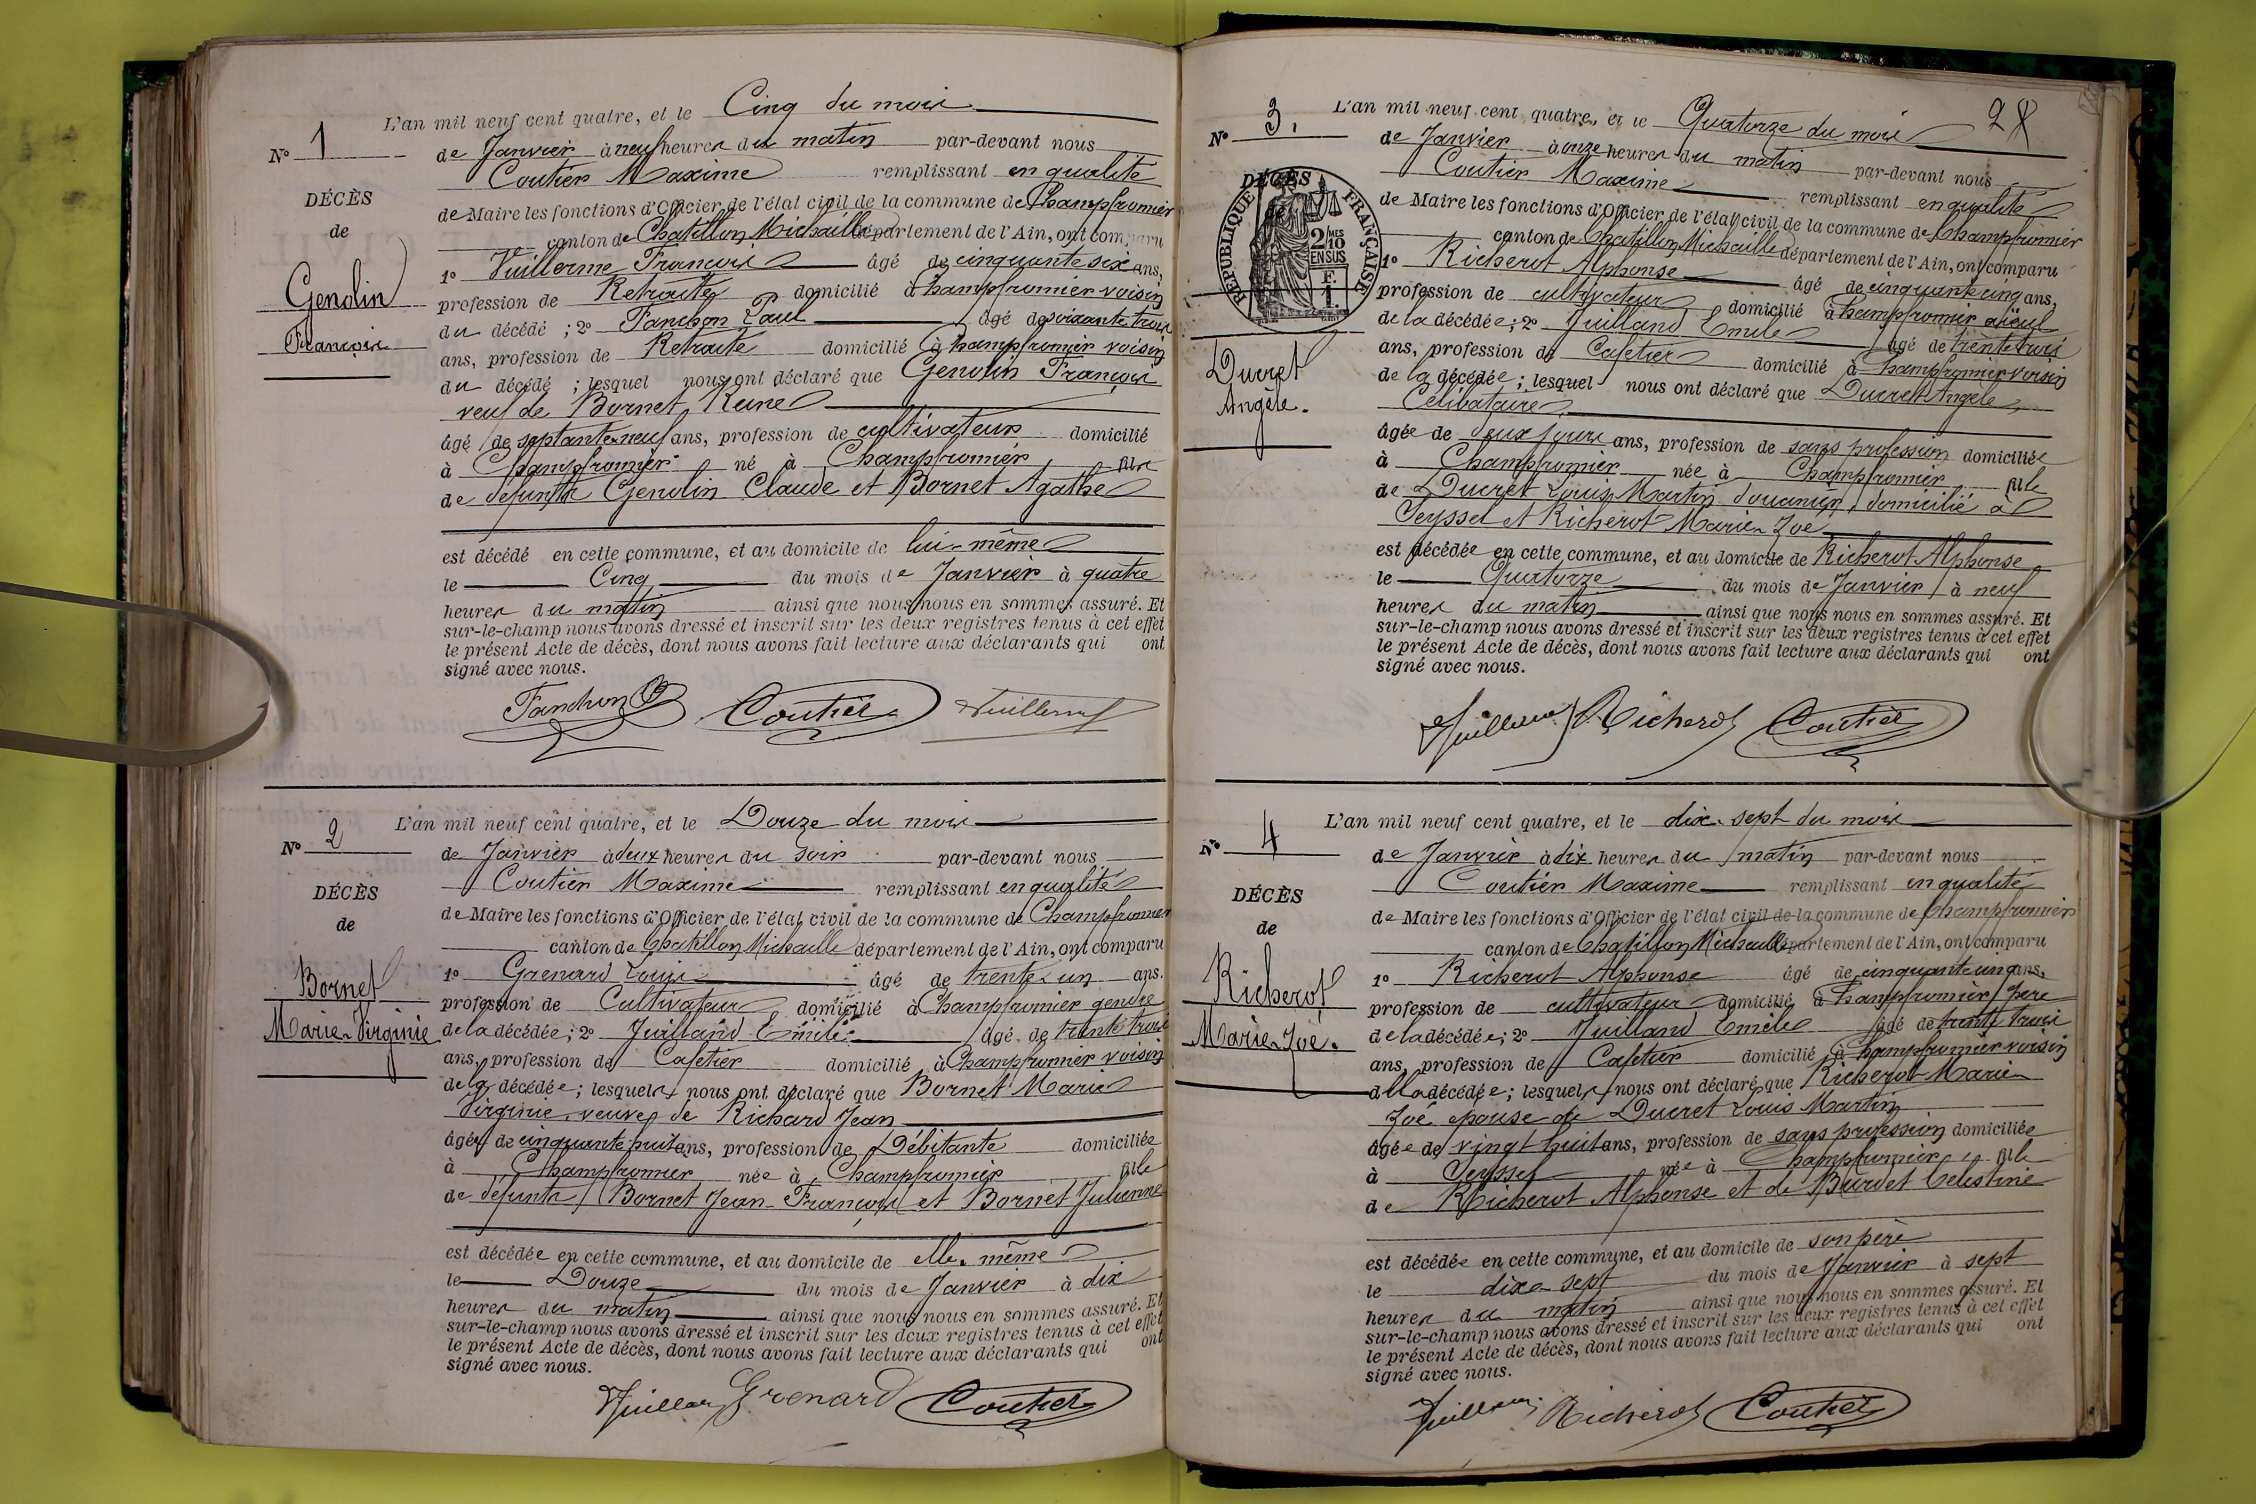 L'an mil neuf cent quatre, et le Cinq du mois
N° 1 de Janvier à neuf heures du matin par-devant nous
Coutier Maxime remplissant en qualité
DÉCÈS
de Maire les fonctions d'Officier de l'état civil de la commune de Champfromier
de
canton de Chatillon Michaille département de l'Ain, ont comparu
1° Vuillerme François âgé de cinquante six ans,
Genolin
profession de Retraité domicilié à Champfromier voisin
du décédé ; 2° Fanchon Paul âgé de soixante trois
François
ans, profession de Retraité domicilié à Champfromier voisin
du décédé ; lesquels nous ont déclaré que Genolin François
veuf de Bornet Reine
âgé de septante neuf ans, profession de cultivateur domicilié
à Champfromier né à Champfromier fils
de défunts Genolin Claude et Bornet Agathe
est décédé en cette commune, et au domicile de lui-même
le Cinq du mois de Janvier à quatre
heures du matin ainsi que nous nous en sommes assuré. Et
sur-le-champ nous avons dressé et inscrit sur les deux registres tenus à cet effet
le présent Acte de décès, dont nous avons fait lecture aux déclarants qui ont
signé avec nous.
Fanchon P Coutier Vuillerme
L'an mil neuf cent quatre, et le Douze du mois
N° 2 de Janvier à deux heures du soir par-devant nous
Coutier Maxime remplissant en qualité
DÉCÈS
de Maire les fonctions d'Officier de l'état civil de la commune de Champfromier
de
canton de Chatillon Michaille département de l'Ain, ont comparu
1° Grenard Louis âgé de trente-un ans.
Bornet
profession de Cultivateur domicilié à Champfromier gendre
Marie-Virginie
de la décédée ; 2° Juilland Emile âgé de trente trois
ans, profession de Cafetier domicilié à Champfromier voisin
de la décédée ; lesquels nous ont déclaré que Bornet Marie
Virginie veuve de Richard Jean
âgée de cinquante huit ans, profession de Débitante domiciliée
à Champfromier née à Champfromier fille
de défunts Bornet Jean-François et Bornet Julienne
est décédée en cette commune, et au domicile de elle-même
le Douze du mois de Janvier à dix
heures du matin ainsi que nous nous en sommes assuré. Et
sur-le-champ nous avons dressé et inscrit sur les deux registres tenus à cet effet
le présent Acte de décès, dont nous avons fait lecture aux déclarants qui ont
signé avec nous.
Juilland Grenard Coutier
L'an mil neuf cent quatre, et le Quatorze du mois
N° 3. de Janvier à onze heures du matin par-devant nous
Coutier Maxime remplissant en qualité
DÉCÈS
de Maire les fonctions d'Officier de l'état civil de la commune de Champfromier
de
RÉPUBLIQUE FRANÇAISE
2/10MES
EN SUS
F.
1.
canton de Chatillon Michaille département de l'Ain, ont comparu
1° Richerot Alphonse âgé de cinquante cinq ans,
profession de cultivateur domicilié à Champfromier aïeul
de la décédée ; 2° Juilland Emile âgé de trente trois
Ducret
ans, profession de Cafetier domicilié à Champfromier voisin
Angèle.
de la décédée ; lesquel nous ont déclaré que Ducret Angèle,
Célibataire,
âgée de deux jours ans, profession de sans profession domiciliée
à Champfromier née à Champfromier fille
de Ducret Louis Martin douanier domicilié à
Seyssel et Richerot Marie-Zoé
est décédée en cette commune, et au domicile de Richerot Alphonse
le Quatorze du mois de Janvier à neuf
heures du matin ainsi que nous nous en sommes assuré. Et
sur-le-champ nous avons dressé et inscrit sur les deux registres tenus à cet effet
le présent Acte de décès, dont nous avons fait lecture aux déclarants qui ont
signé avec nous.
Juilland Richerot Coutier
L'an mil neuf cent quatre, et le dix-sept du mois
N° 4 de Janvier à dix heures du matin par-devant nous
Coutier Maxime remplissant en qualité
DÉCÈS
de Maire les fonctions d'Officier de l'état civil de la commune de Champfromier
de
canton de Chatillon Michaille département de l'Ain, ont comparu
1° Richerot Alphonse âgé de cinquante cinq ans,
Richerot
profession de cultivateur domicilié à Champfromier père
Marie-Zoé.
de la décédée ; 2° Juilland Emile âgé de trente trois
ans, profession de Cafetier domicilié à Champfromier voisin
de la décédée ; lesquels nous ont déclaré que Richerot Marie
Zoé épouse de Ducret Louis Martin
âgée de vingt huit ans, profession de sans profession domiciliée
à Seyssel née à Champfromier fille
de Richerot Alphonse et de Burdet Célestine
est décédée en cette commune, et au domicile de son père
le dix-sept du mois de Janvier à sept
heures du matin ainsi que nous nous en sommes assuré. Et
sur-le-champ nous avons dressé et inscrit sur les deux registres tenus à cet effet
le présent Acte de décès, dont nous avons fait lecture aux déclarants qui ont
signé avec nous.
Juilland Richerot Coutier